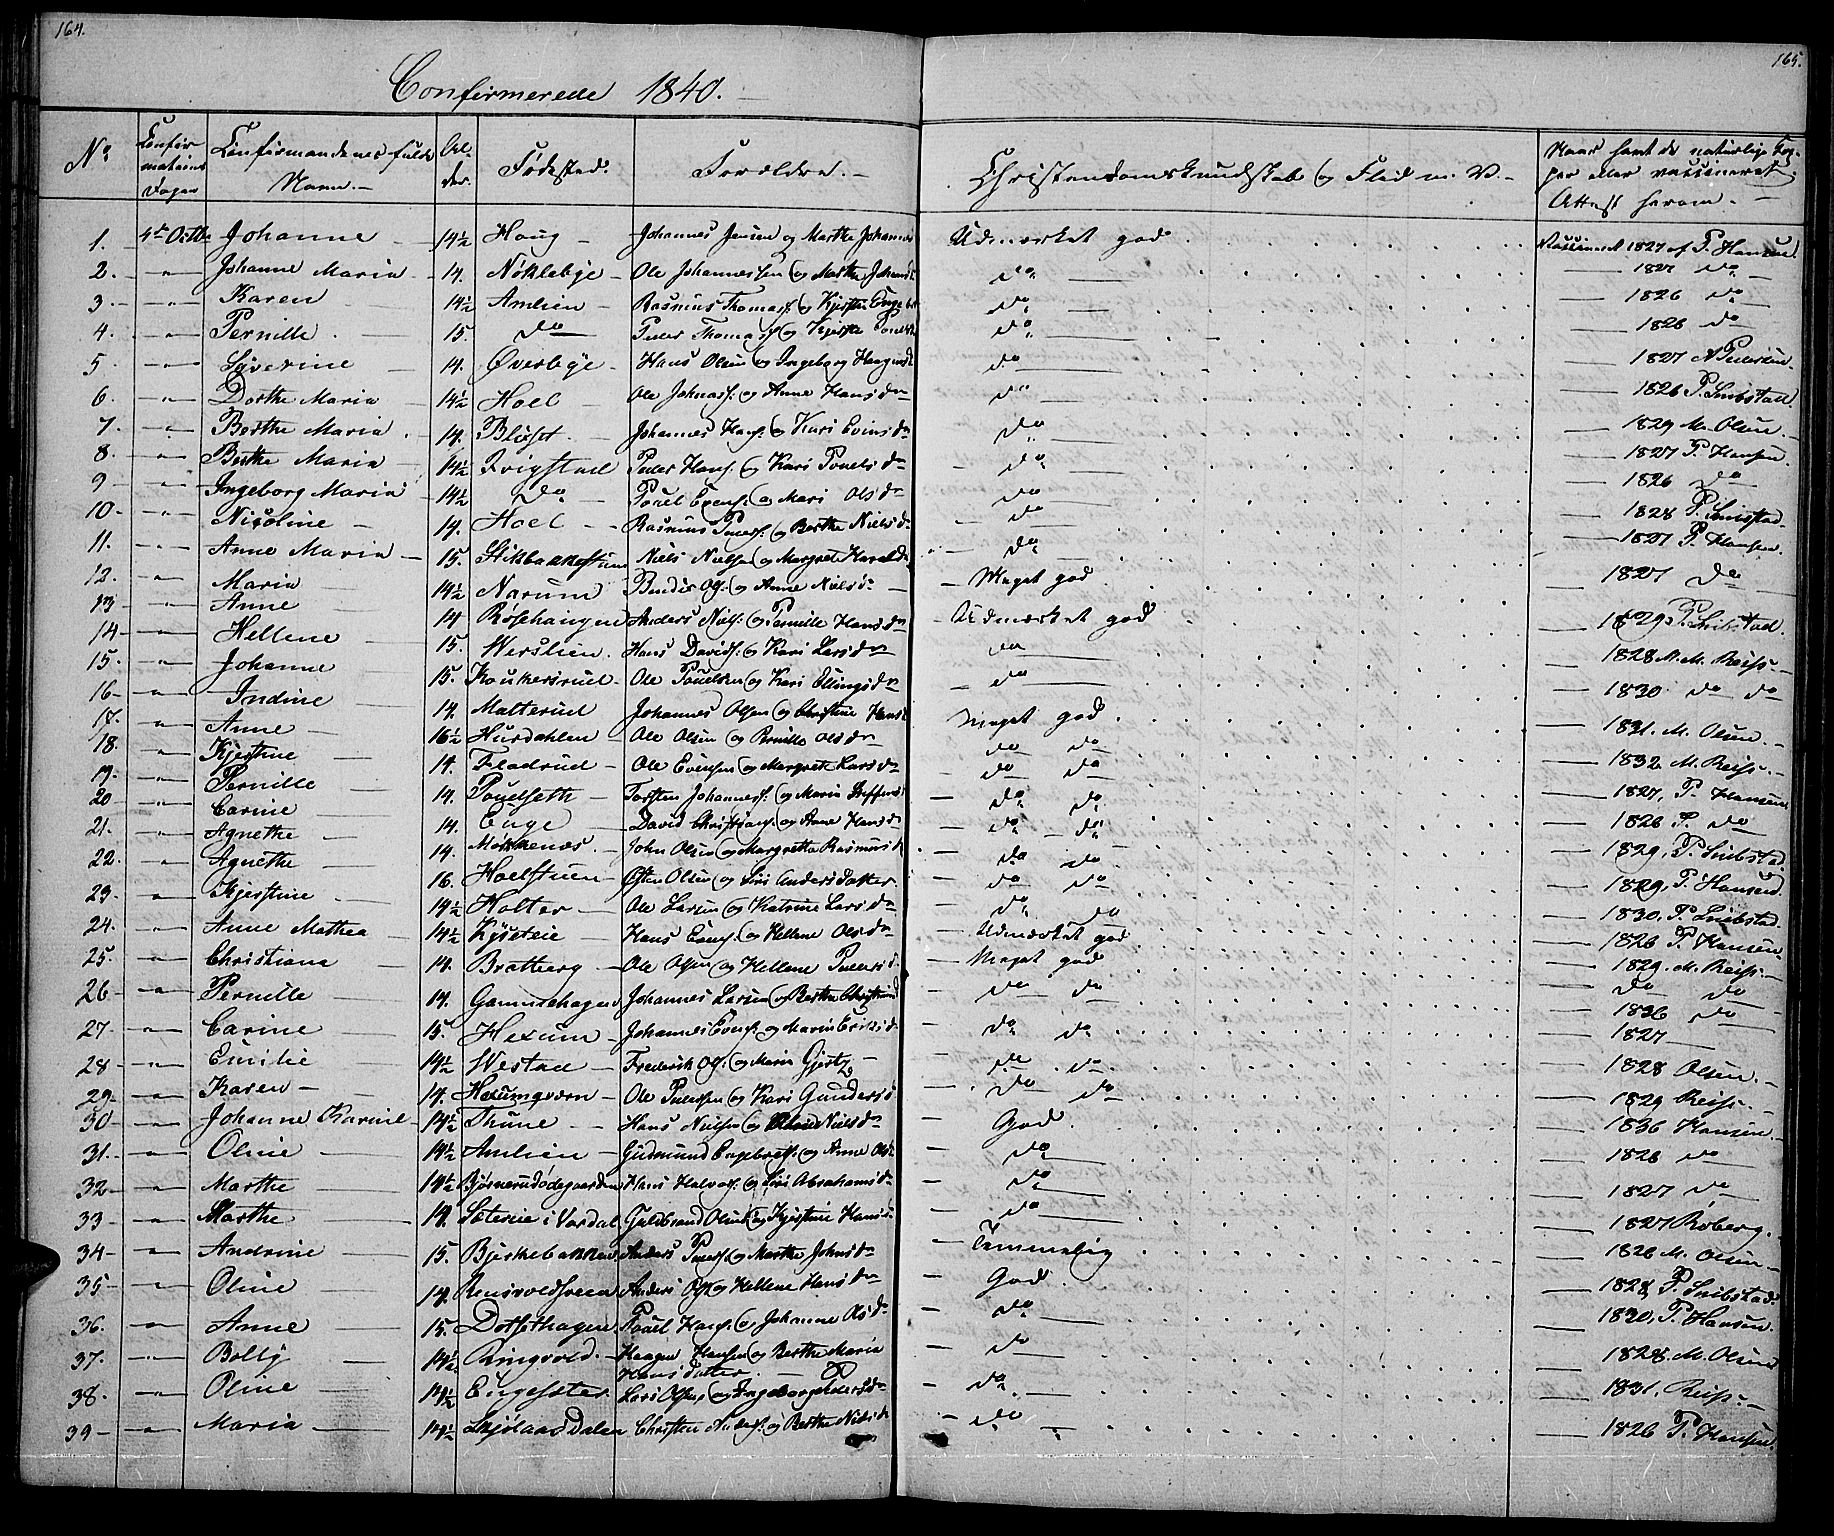 164.
165.
Confirmerede 1840.
No
Confir
mations
Dagen
Confirmandenes fulde
Navn.
Al-
der.
Fødested.
Forældre.
Christendomskundskab og Flid m. V.
Naar havt de naturlige Kop-
per eller vaccineret
Attest herom.
1. 4de Octbr Johanne 14½ Houg Johannes Jensen og Marthe Johannes Udmærket god Vaccineret 1827 af P. Hansen
2. " Johanne Maria 14. Nøklebye Ole Johannessen og Marthe Johansd do 1827 do
3. " Karen 14½ Amlien Rasmus Thomass. og Kjersti Engebr do 1826 do
4. " Pernille 15. do Peder Thomass. og Kjersti Pouelsd do 1826 do
5. " Syverine 14. Øverbye Hans Olsen og Ingeborg Haagensd do 1827 N Pedersen
6. " Dorthe Maria 14½ Hoel Ole Johnass. og Anne Hansdr do 1826 P. Snibstad.
7. " Berthe Maria 14. Blixet Johannes Hans. og Kari Evensdr do 1829 M. Olsen
8. " Berthe Maria 14½ Ivigstad Peder Hans. og Kari Pouelsdr do 1827 P. Hansen
9. " Ingeborg Maria 14½ do Pouel Evens. og Mari Olsdr do 1826 do
10. " Nicoline 14. Hoel Rasmus Peders. og Berthe Nielsdr do 1828 P. Snibstad.
11. " Anne Maria 15. Stikbakkestuen Niels Nielsen og Margrete Haralds do 1827 P. Hansen.
12. " Maria 14½ Narum Bendix Ols. og Anne Nielsdr Meget god 1827 do
13 " Anne 14 Røsehaugen Anders Niels. og Pernille Hansdr Udmærket god 1829 P. Snibstad.
14 " Hellene 15. Werslien. Hans Davids. og Kari Larsdr do 1828 M. M. Reiss
15. " Johanne 15. Koukersrud Ole Pouelsen og Kari Ellingsdr do 1830 do do
16 " Indine 14. Matterud Johannes Olsen og Christine Hansd Meget god 1831. M. Olsen.
17. " Anne 16½ Hurdahlen Ole Olsen og Pernille Olsdr do do 1832 M. Reiss.
18. " Kjerstine 14. Fladrud Ole Evensen og Margrete Larsdr do do 1827. P. Hansen
19. " Pernille 14. Pouelseth Torsten Johanness. og Maria Steffens do do 1826 P. do
20 " Carine 14. Enge David Christians. og Anne Hansdr do do 1829. P. Snibstad
21. " Agnethe 14. Møkkenæs John Olsen og Margrethe Rasmusd do do 1829. P. Hansen
22. " Agnethe 16. Hoelstuen Osten Olsen og Siri Andersdatter. do do 1830. P. Snibstad.
23. " Kjerstine 14½ Holter Ole Larsen og Katrine Larsdr do do 1826 P. Hansen
24. " Anne Mathea 14½ Kyseteie Hans Evens. og Hellene Olsdr Udmærket god 1829. M. Reiss.
25. " Christiana 14. Bratberg Ole Olsen og Hellene Pedersd Meget god do do
26. " Pernille 14. Gammehagen Johannes Larsen og Berthe Christians do do 1826 do
27. " Carine 15. Hexum Johannes Evens. og Maria Eriksdr do do 1827
28. " Emilie 14½ Westad Frederik Ols. og Maria Gjertz do do 1828 Olsen.
29. " Karen 14. Hexumqværn Ole Pedersen og Kari Gundersd do do 1829 Reiss.
30 " Johanne Karine 14½ Thune Hans Nielsen og Nielsdr God. 1836 Hansen.
31. " Oline 14½ Amlien Gudmund Engebrets. og Anne Olsd do 1826 do
32. " Marthe 14½ Bjørnerudødegaarden Hans Halvors. og Siri Abrahamsdr do 1827 do
33 " Marthe 14. Soteie i Vardal Guldbrand Olsen og Kjerstine Hansd do 1827 Roberg.
34 " Andrine 15. Bjerkebakken Anders Peders. og Marthe Johnsdr Temmelig 1826 M. Olsen
35 " Oline 14. Rensvoldsveen Anders Ols. og Hellene Hansdr God. 1828 P. Snibstad
36. " Anne 15. Dotsethagen Pouel Hans. og Johanne Olsdr do 1820. P. Hansen.
37. " Bolly 14½ Ringvold. Haagen Hansen og Berthe Maria do 1828. M. Olsen
Hansdatter.
38. " Oline 14½ Engesæter Lars Olsen, og Ingeborg Pedersdr do 1831. Reiss.
39 " Maria 14½ Skjølaasdalen Christen Peders. og Berthe Nielsd do 1826 P. Hansen